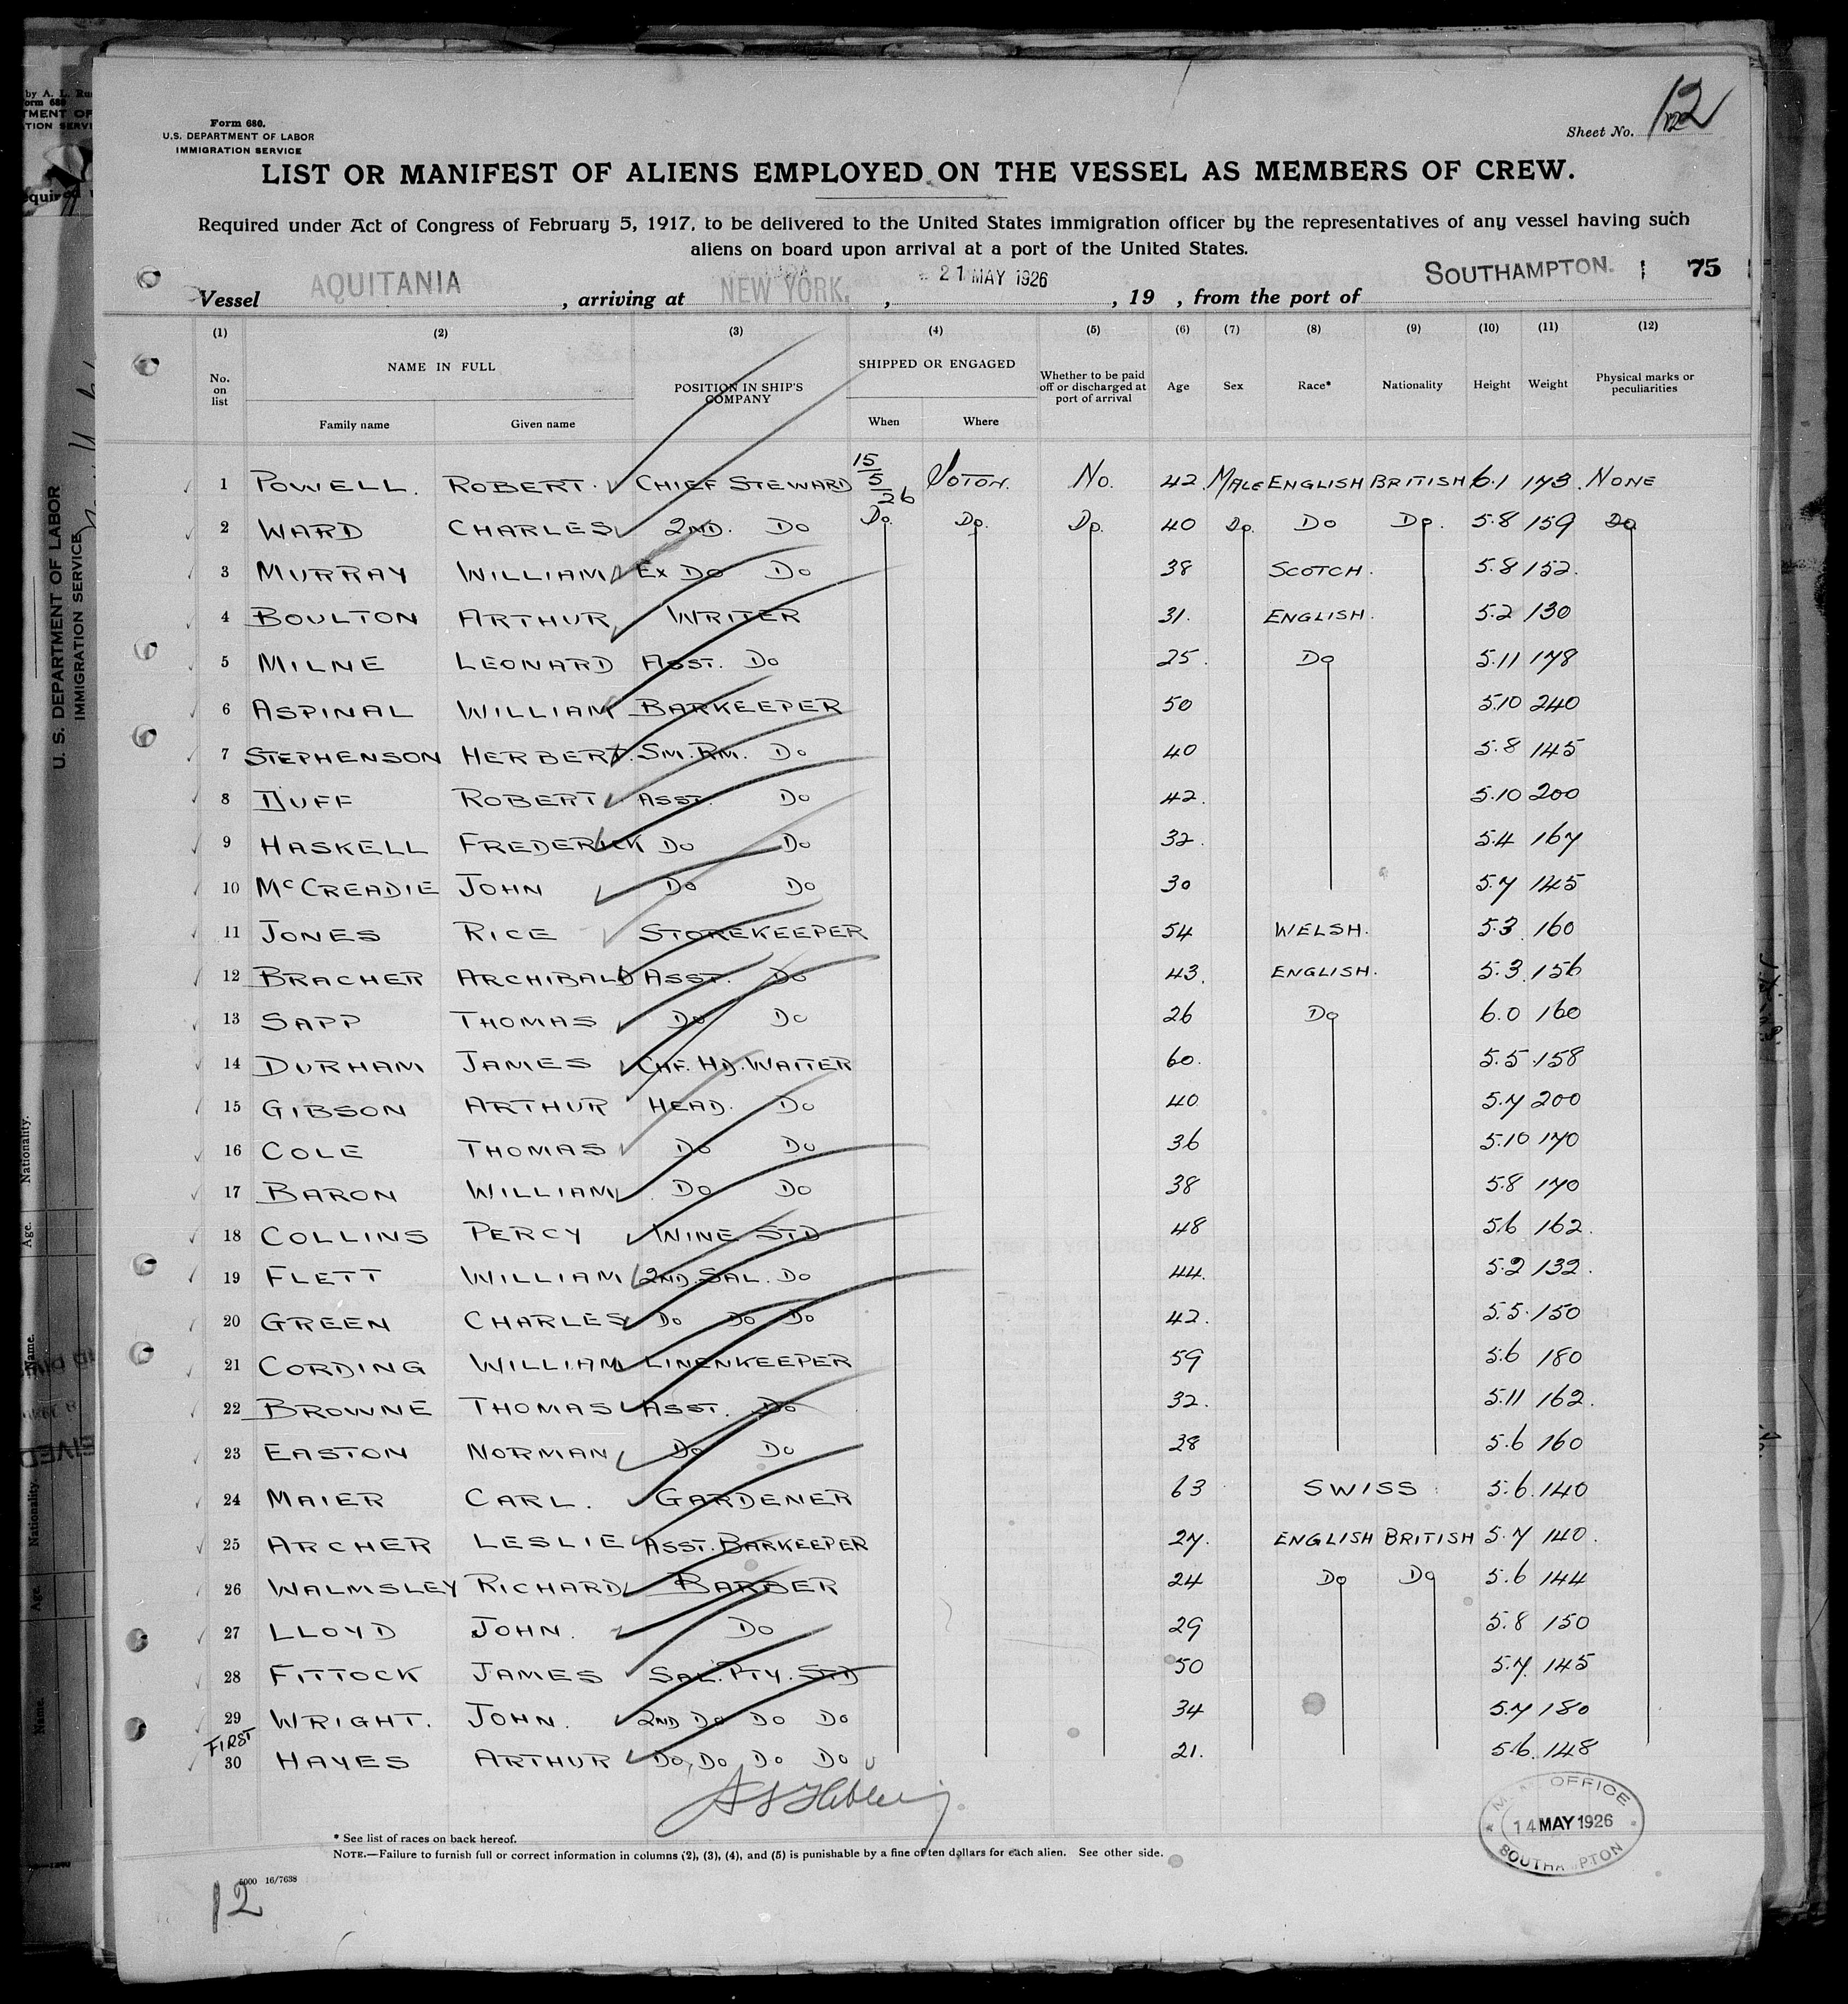 Form 680.
U.S. DEPARTMENT OF LABOR
IMMIGRATION SERVICE
Sheet No. 12
LIST OR MANIFEST OF ALIENS EMPLOYED ON THE VESSEL AS MEMBERS OF CREW.
Required under Act of Congress of February 5, 1917, to be delivered to the United States immigration officer by the representatives of any vessel having such
aliens on board upon arrival at a port of the United States.
Vessel AQUITANIA, arriving at NEW YORK, 21 MAY 1926, 19 , from the port of SOUTHAMPTON. 75
(1) (2) (3) (4) (5) (6) (7) (8) (9) (10) (11) (12)
No. on list NAME IN FULL Family name Given name POSITION IN SHIP'S COMPANY SHIPPED OR ENGAGED When Where Whether to be paid off or discharged at port of arrival Age Sex Race* Nationality Height Weight Physical marks or peculiarities
1 POWELL. ROBERT. CHIEF STEWARD 15/5/26 SOTON. NO. 42 MALE ENGLISH BRITISH 6.1 173 NONE
2 WARD CHARLES 2ND. DO DO. DO. DO. 40 DO. DO DO. 5.8 159 DO
3 MURRAY WILLIAM EX DO DO 38 SCOTCH. 5.8 152.
4 BOULTON ARTHUR WRITER 31. ENGLISH. 5.2 130
5 MILNE LEONARD ASST. DO 25. DO 5.11 178
6 ASPINAL WILLIAM BARKEEPER 50 5.10 240
7 STEPHENSON HERBERT. SM. RM. DO 40 5.8 145
8 DUFF ROBERT ASST. DO 42. 5.10 200
9 HASKELL FREDERICK DO DO 32. 5.4 167
10 McCREADIE JOHN DO DO 30 5.7 145
11 JONES RICE STOREKEEPER 54 WELSH. 5.3 160
12 BRACHER ARCHIBALD ASST. DO 43. ENGLISH. 5.3. 156
13 SAPP THOMAS DO DO 26 DO 6.0 160
14 DURHAM JAMES CHF. HD. WAITER 60. 5.5 158
15 GIBSON ARTHUR HEAD. DO 40 5.7 200
16 COLE THOMAS DO DO 36 5.10 170
17 BARON WILLIAM DO DO 38 5.8 170
18 COLLINS PERCY WINE STD 48 5.6 162.
19 FLETT WILLIAM 2ND. SAL. DO 44. 5.2 132.
20 GREEN CHARLES DO DO DO 42. 5.5. 150
21 CORDING WILLIAM LINENKEEPER 59 5.6 180
22 BROWNE THOMAS ASST. DO 32. 5.11 162.
23 EASTON NORMAN DO DO 28 5.6 160
24 MAIER CARL. GARDENER 63 SWISS 5.6. 140
25 ARCHER LESLIE ASST. BARKEEPER 27. ENGLISH BRITISH 5.7 140.
26 WALMSLEY RICHARD BARBER 24 DO DO 5.6 144
27 LLOYD JOHN. DO 29 5.8 150
28 FITTOCK JAMES SAL. PTY. STD 50 5.7. 145
29 WRIGHT. JOHN. 2ND DO DO DO 34 5.7 180
FIRST
30 HAYES ARTHUR DO, DO DO DO 21. 5.6. 148
* See list of races on back hereof.
NOTE.—Failure to furnish full or correct information in columns (2), (3), (4), and (5) is punishable by a fine of ten dollars for each alien. See other side.
OFFICE
14 MAY 1926
SOUTHAMPTON
5000 16/7638
12
U. S. DEPARTMENT OF LABOR
IMMIGRATION SERVICE
Nationality.
Age.
Name.
Nationality
Age.
Name.